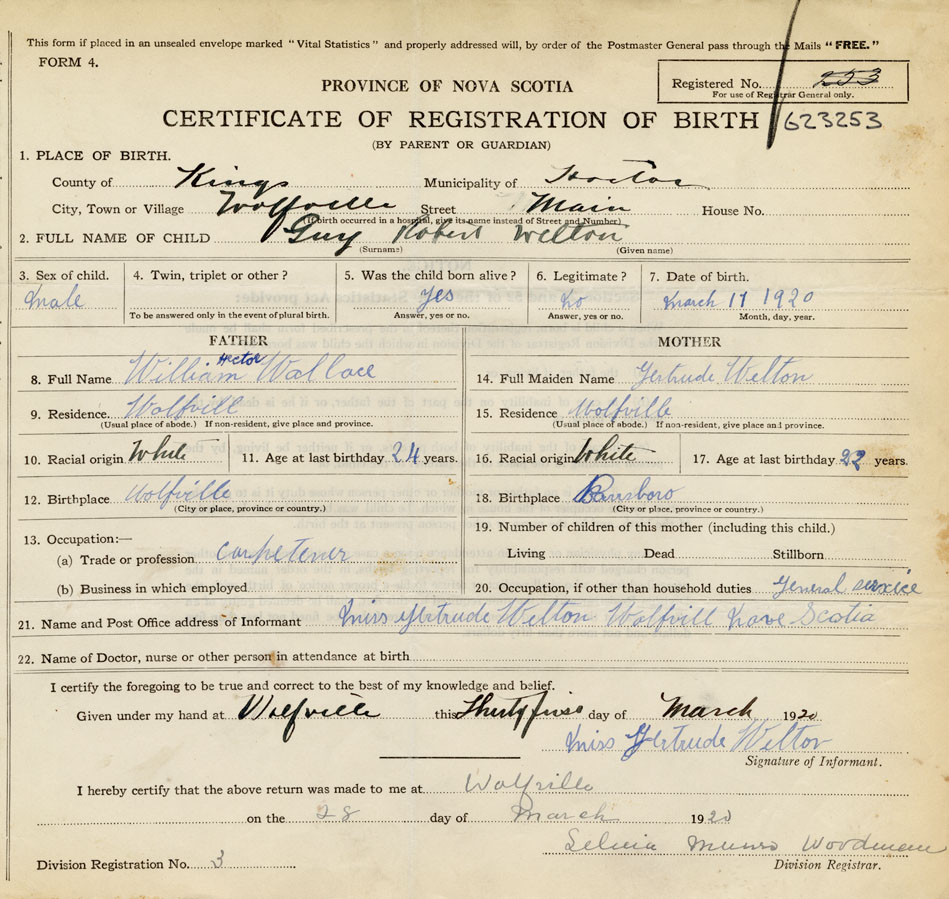 This form if placed in an unsealed envelope marked "Vital Statistics" and properly addressed will, by order of the Postmaster General pass through the Mails "FREE."
FORM 4.
Registered No. 253
For use of Registrar General only.
PROVINCE OF NOVA SCOTIA
CERTIFICATE OF REGISTRATION OF BIRTH 623253
(BY PARENT OR GUARDIAN)
1. PLACE OF BIRTH.
County of Kings Municipality of Horton
City, Town or Village Wolfville Street Main House No.
(If birth occurred in a hospital, give its name instead of Street and Number)
2. FULL NAME OF CHILD Guy Robert Welton
(Surname) (Given name)
3. Sex of child. 4. Twin, triplet or other? 5. Was the child born alive? 6. Legitimate? 7. Date of birth.
Male Yes No March 17 1920
To be answered only in the event of plural birth. Answer, yes or no. Answer, yes or no. Month, day, year.
FATHER
8. Full Name William Hector Wallace
9. Residence Wolfvill
(Usual place of abode.) If non-resident, give place and province.
10. Racial origin White 11. Age at last birthday 24 years.
12. Birthplace Wolfville
(City or place, province or country.)
13. Occupation:—
(a) Trade or profession carpetener
(b) Business in which employed
MOTHER
14. Full Maiden Name Gertrude Welton
15. Residence Wolfville
(Usual place of abode.) If non-resident, give place and province.
16. Racial origin White 17. Age at last birthday 22 years.
18. Birthplace
(City or place, province or country.)
19. Number of children of this mother (including this child.)
Living Dead Stillborn
20. Occupation, if other than household duties General service
21. Name and Post Office address of Informant Miss Gertrude Welton Wolfvill Nove Scotia
22. Name of Doctor, nurse or other person in attendance at birth
I certify the foregoing to be true and correct to the best of my knowledge and belief.
Given under my hand at Wolfville this Thirty first day of March 1920
Miss Gertrude Welton
Signature of Informant.
I hereby certify that the above return was made to me at Wolfville
on the 28 day of March 1920
Munro Woodman
Division Registration No. 3 Division Registrar.